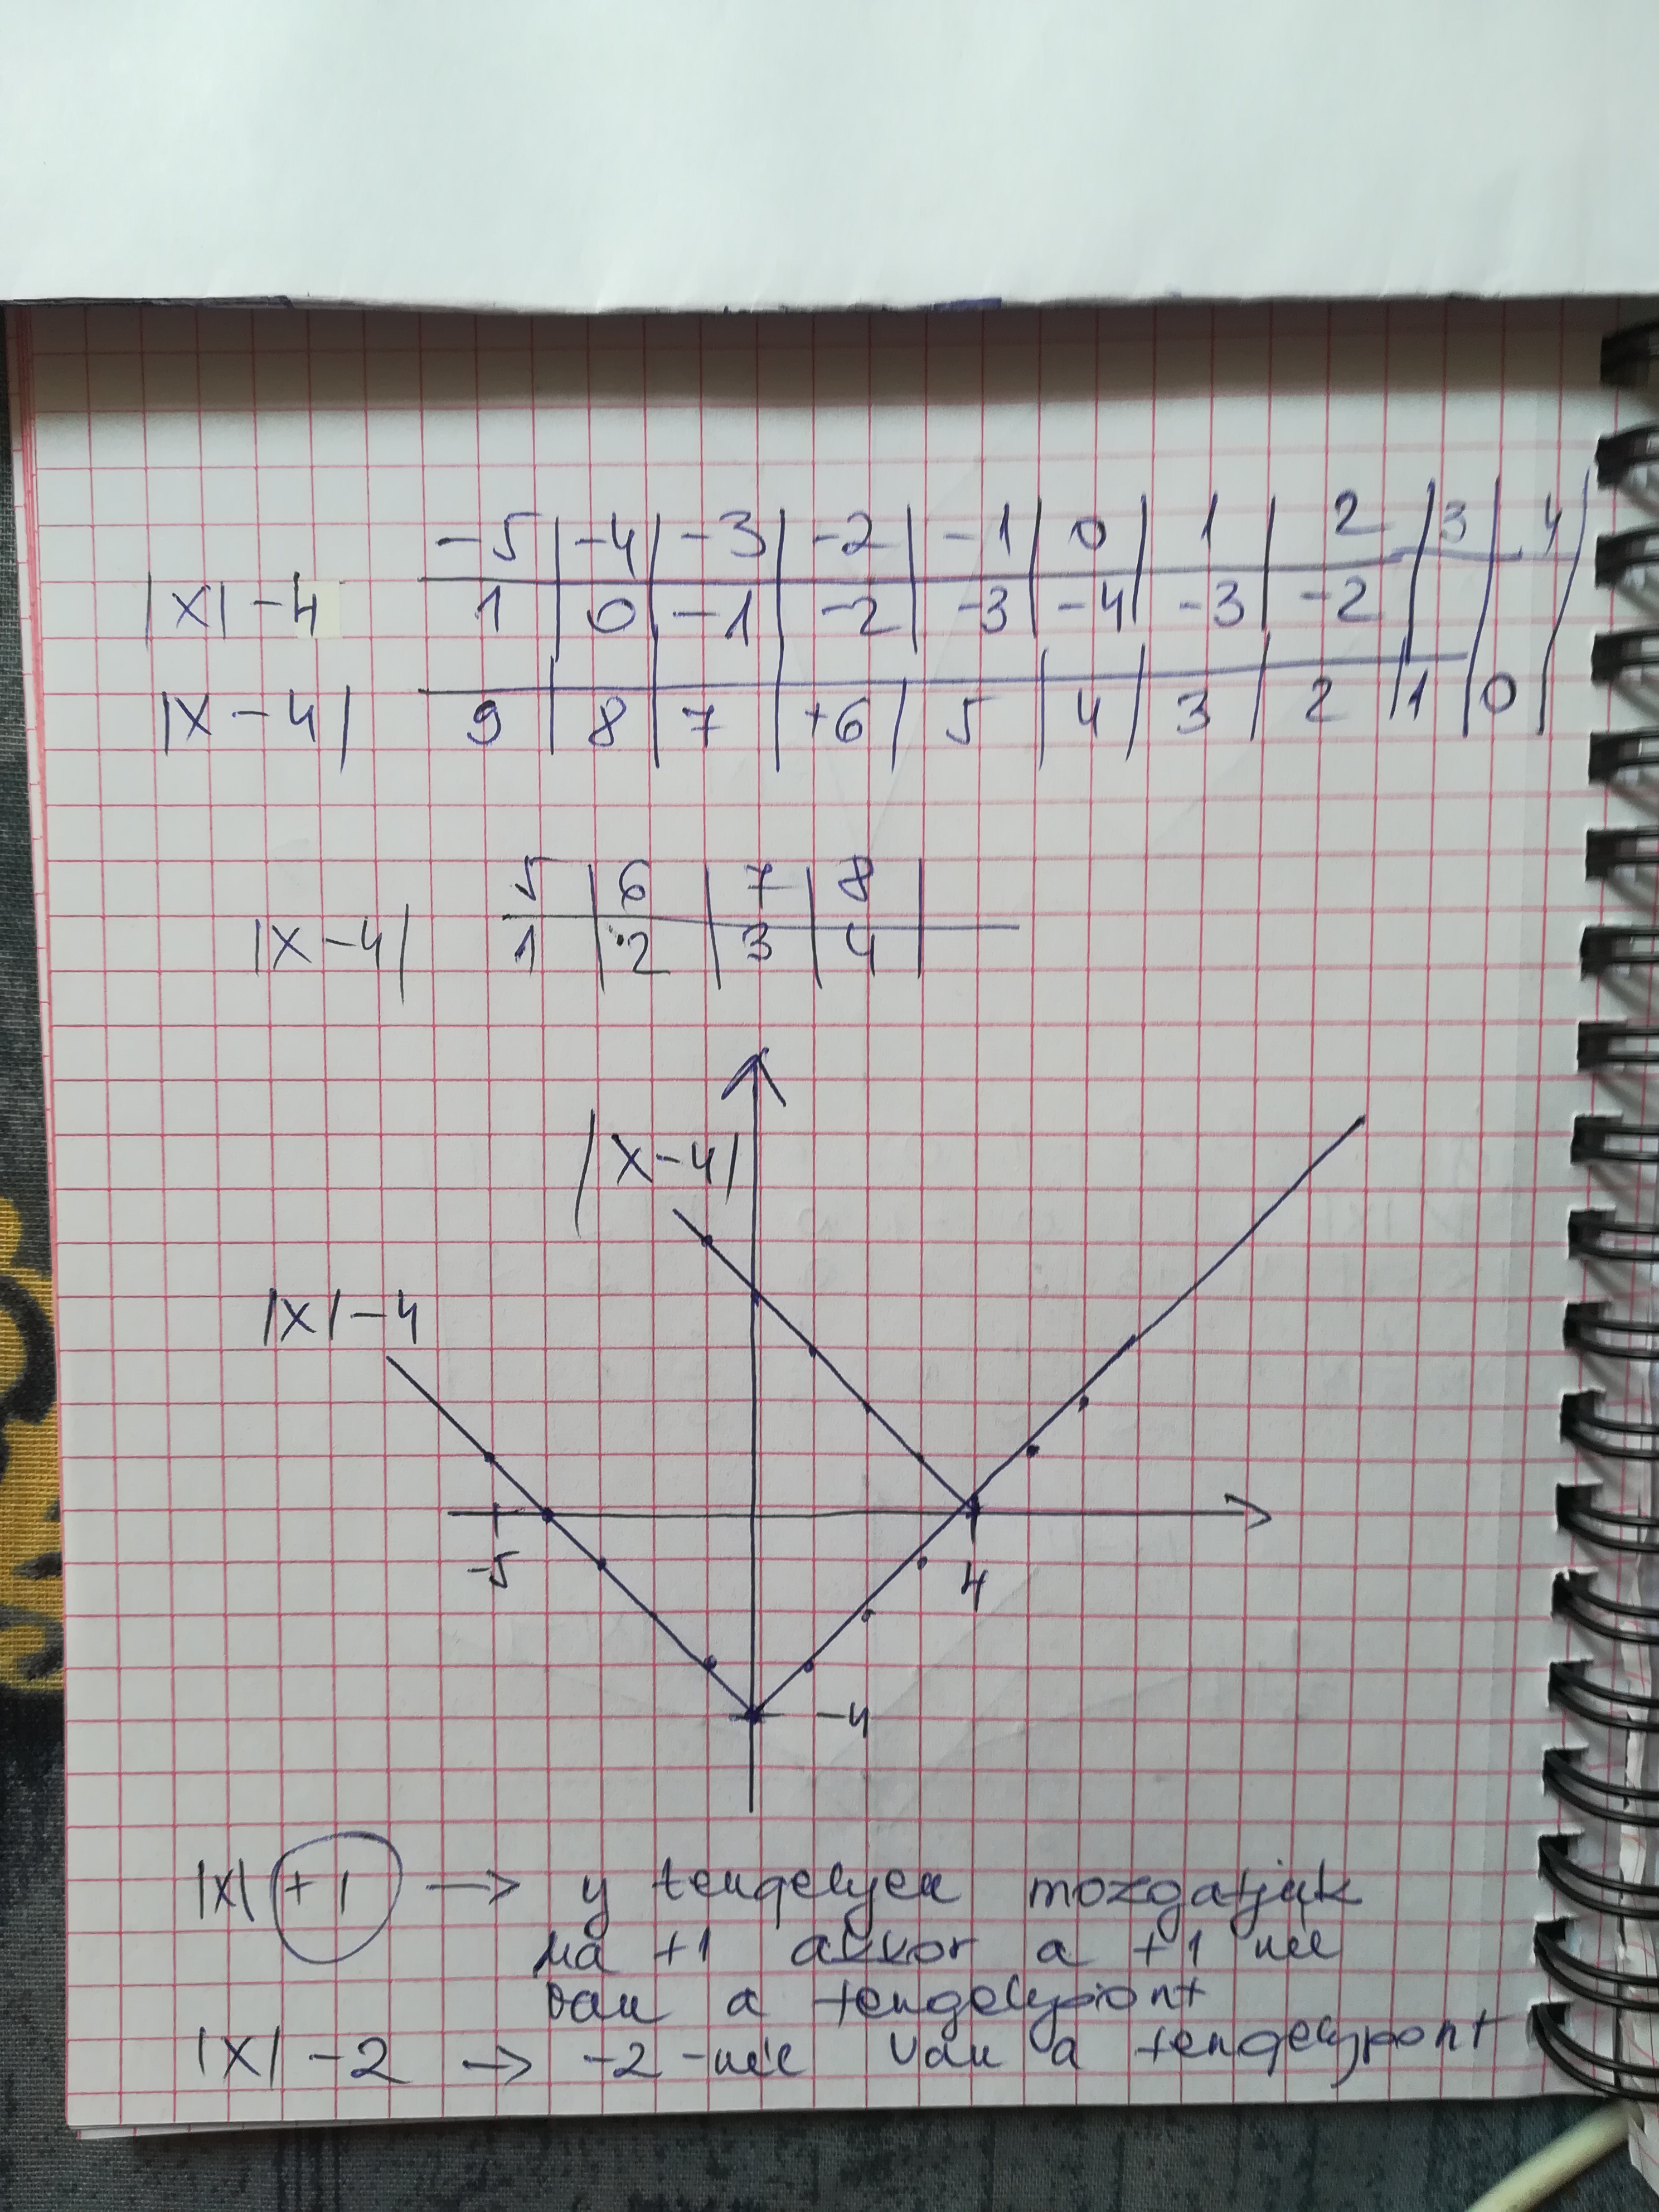 -5 | -4 | -3 | -2 | -1 | 0 | 1 | 2 | 3 | 4
|x| -4 1 | 0 | -1 | -2 | -3 | -4 | -3 | -2
|x - 4| 9 | 8 | 7 | +6 | 5 | 4 | 3 | 2 | 1 | 0
5 | 6 | 7 | 8
|x - 4| 1 | 2 | 3 | 4
|x - 4|
|x| - 4
-5
4
-4
|x| +1 → y tengelyen mozgatjuk
ha +1 akkor a +1 nél
van a tengelypont
|x| -2 → -2 -nél van a tengelypont